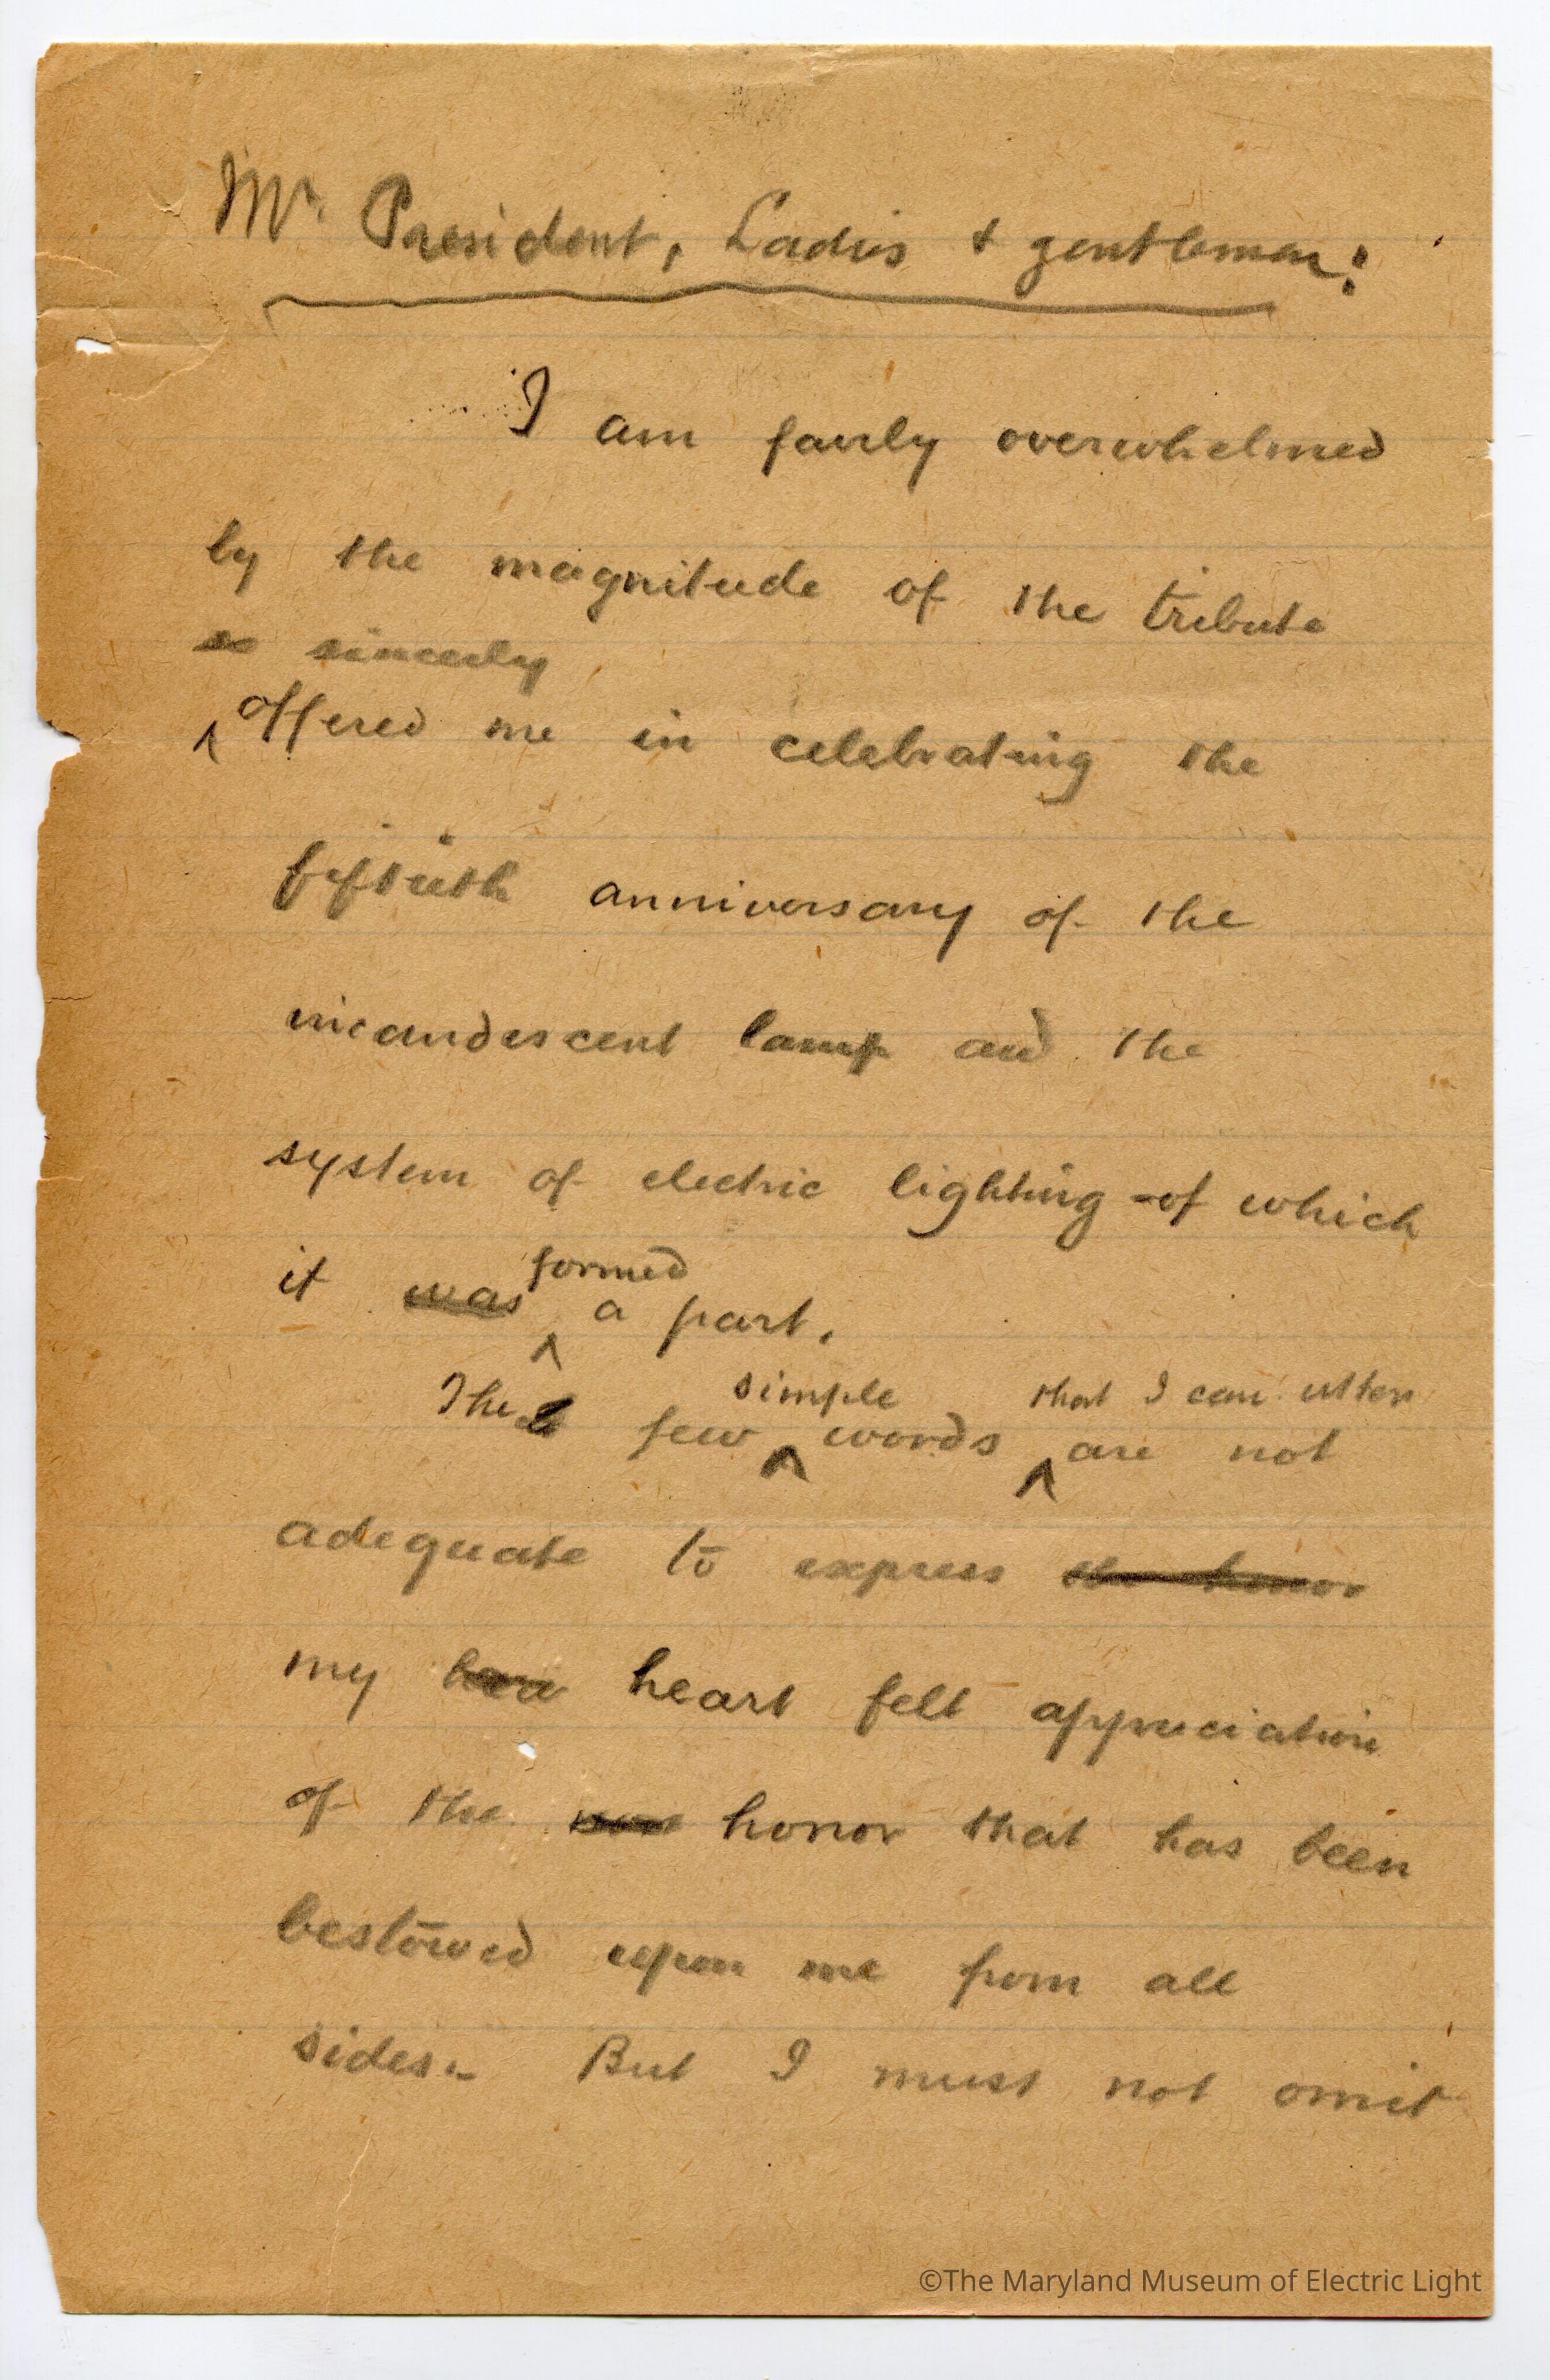 Mr. President, Ladies + gentlemen:
I am fairly overwhelmed
by the magnitude of the tribute
so sincerely
^ offered me in celebrating the
fiftieth anniversary of the
incandescent lamp and the
system of electric lighting of which
formed
it was ^ a part.
simple that I can utter
The few ^ words ^ are not
adequate to express the honor
my heart felt appreciation
of the honor that has been
bestowed upon me from all
sides. But I must not omit
©The Maryland Museum of Electric Light